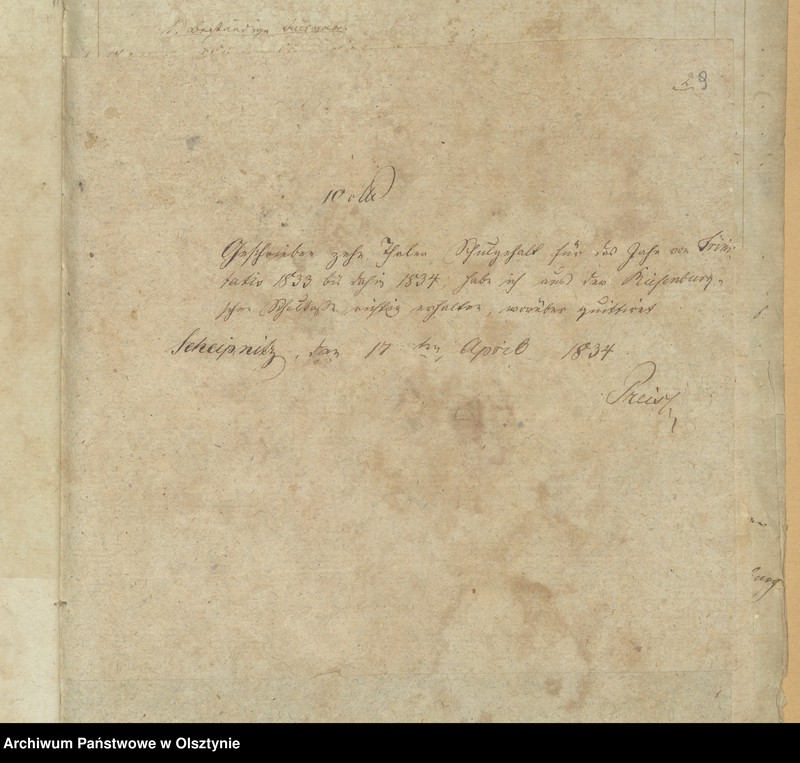 1. Beständige Einnahme
29
10 rtl
Geschrieben zehn Thaler Schulgehalt für das Jahr von Trini-
tatis 1833 bis dahin 1834, habe ich aus der Riesenburg-
schen Schulkasse richtig erhalten, worüber quittiret
Scheipnitz, den 17 ten April 1834
Preis
Archiwum Państwowe w Olsztynie